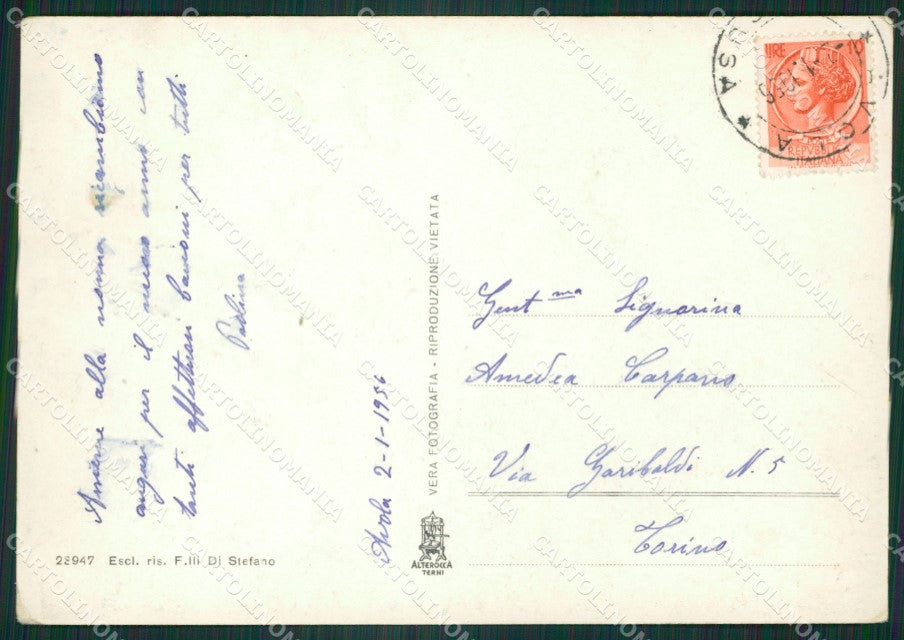 Assieme alla nonna ricambiamo
auguri per il nuovo anno con
tanti affettuosi bacioni per tutti
Paolina
Avola 2-1-1956
28947 Escl. ris. F.lli Di Stefano
VERA FOTOGRAFIA - RIPRODUZIONE VIETATA
ALTEROCCA
TERNI
LIRE 10
REPUBBLICA
ITALIANA
Gent.ma Signorina
Amedea Carpano
Via Garibaldi N. 5
Torino
CARTOLINOMANIA